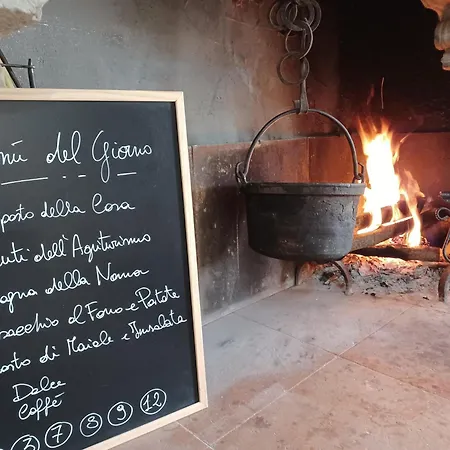 nù del Giorno
posto della Casa
uti dell'Agriturismo
agna della Nonna
acchio al Forno e Patate
osto di Maiale e Insalata
Dolce
Caffè
3 7 8 9 12